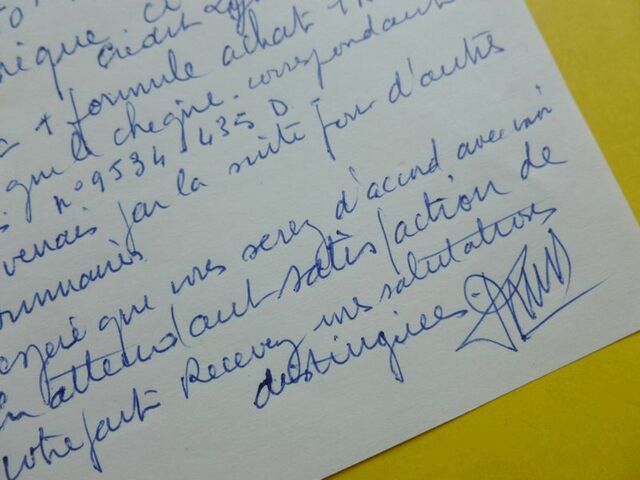 Crédit
+ formule achat +
que le chèque correspondant
n° 9534 435 D
par la suite pour d'autres
espère que vous serez d'accord avec moi
En attendant satisfaction de
votre part Recevez mes salutations
distinguées